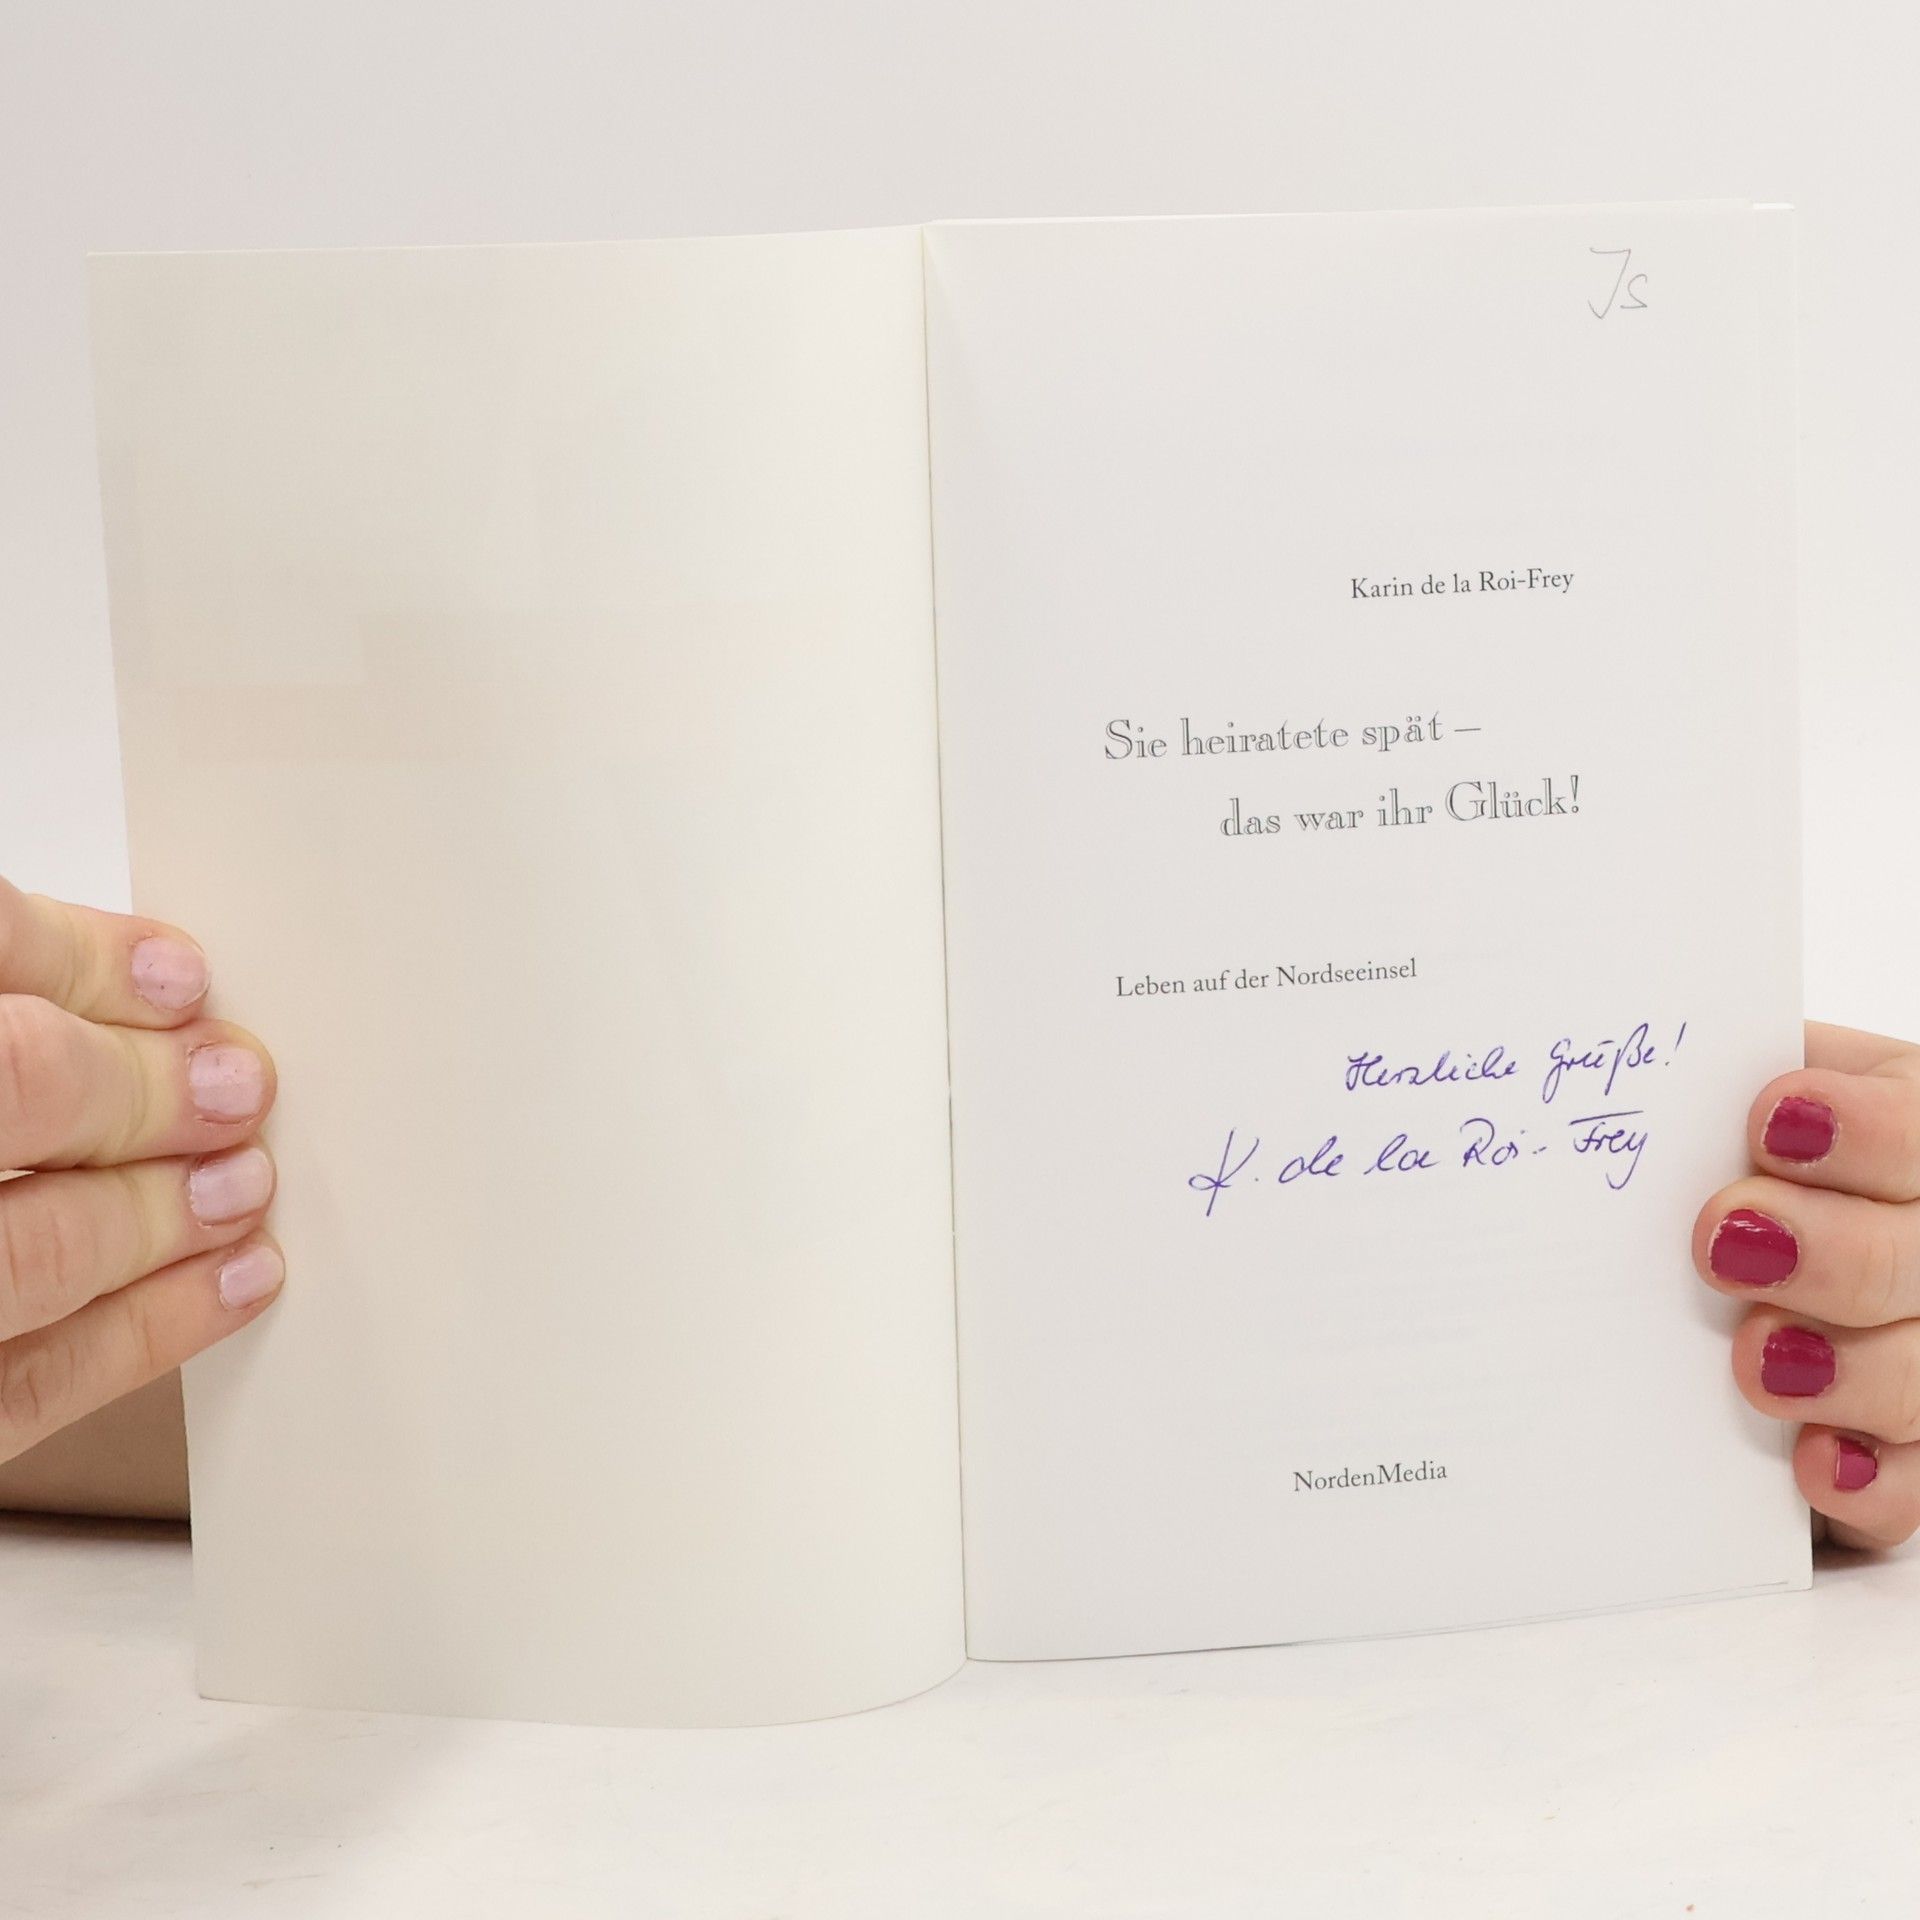 Js
Karin de la Roi-Frey
Sie heiratete spät –
das war ihr Glück!
Leben auf der Nordseeinsel
Herzliche Grüße!
K. de la Roi-Frey
NordenMedia